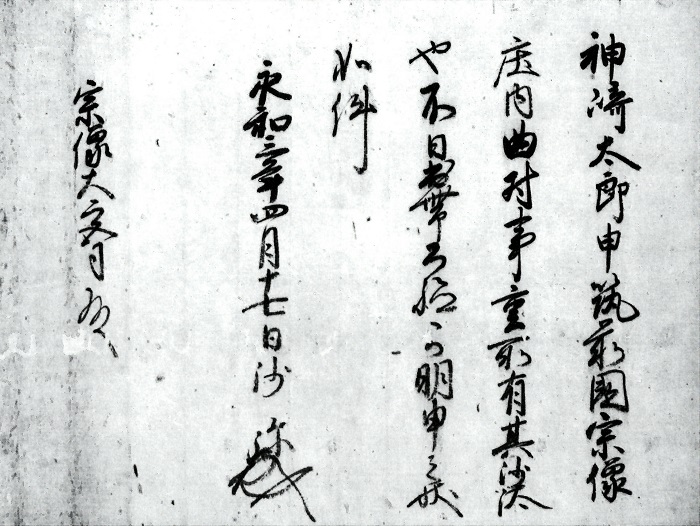 神崎太郎申筑前國宗像
庄内曲村事重所有其沙汰
也不日出帯正文可明申之状
如件
永和三年四月十七日沙弥
宗像大宮司殿